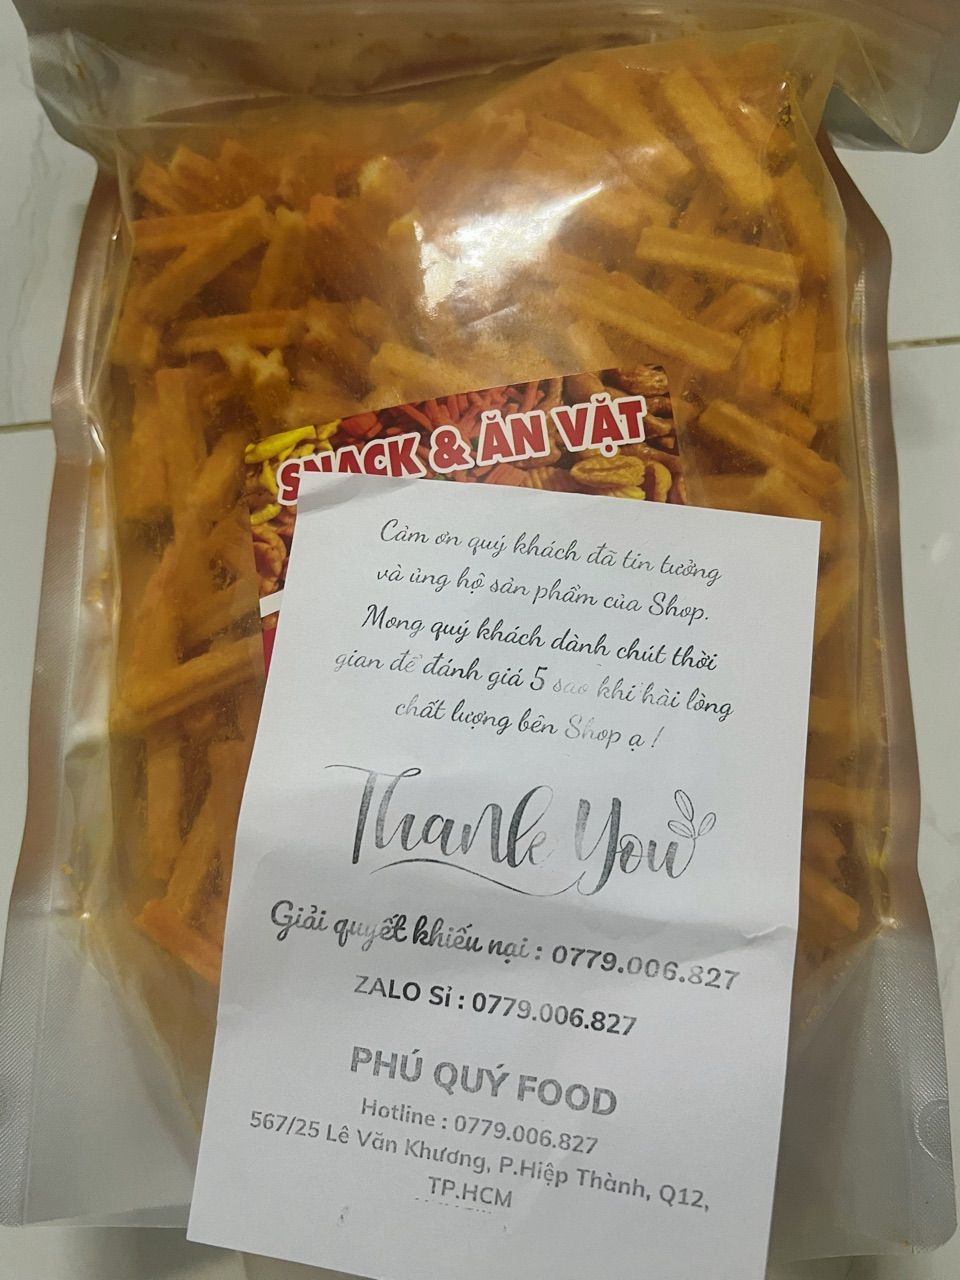 SNACK & ĂN VẶT
Cảm ơn quý khách đã tin tưởng
và ủng hộ sản phẩm của Shop.
Mong quý khách dành chút thời
gian để đánh giá 5 sao khi hài lòng
chất lượng bên Shop ạ !
Thank You
Giải quyết khiếu nại : 0779.006.827
ZALO Sỉ : 0779.006.827
PHÚ QUÝ FOOD
Hotline : 0779.006.827
567/25 Lê Văn Khương, P.Hiệp Thành, Q12,
TP.HCM